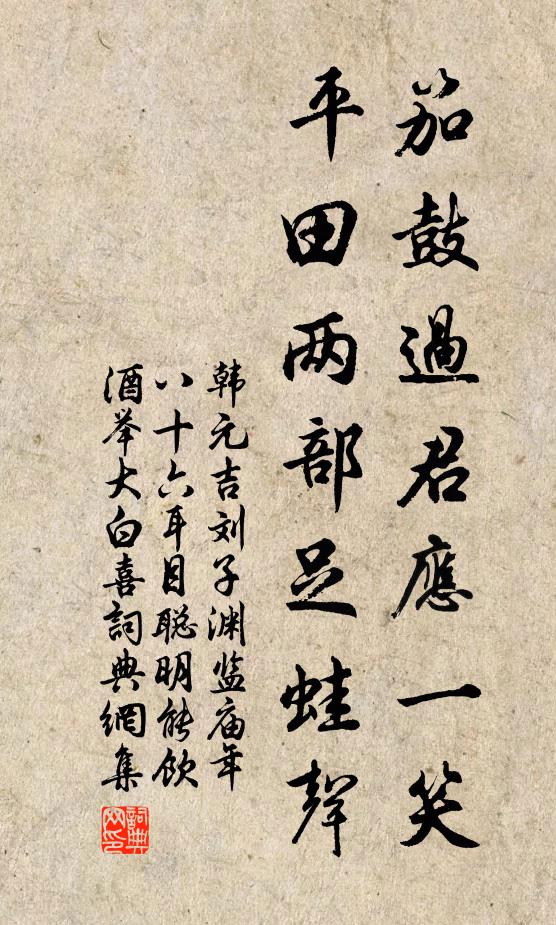 笳鼓過君應一笑
平田两部足蛙聲
韩元吉刘子渊监庙年
八十六耳目聪明能饮
酒举大白喜詞典網集
詞典
网印